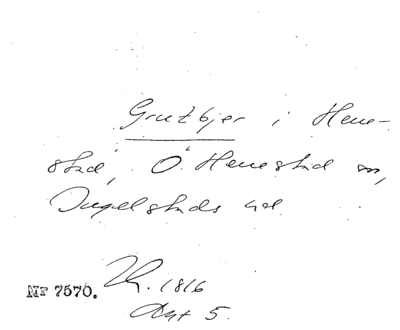 Grutbjer i Hene-
stad, Ö. Henestad sn,
Ingelstads hd
Nr 7570. 1816
Akt 5.